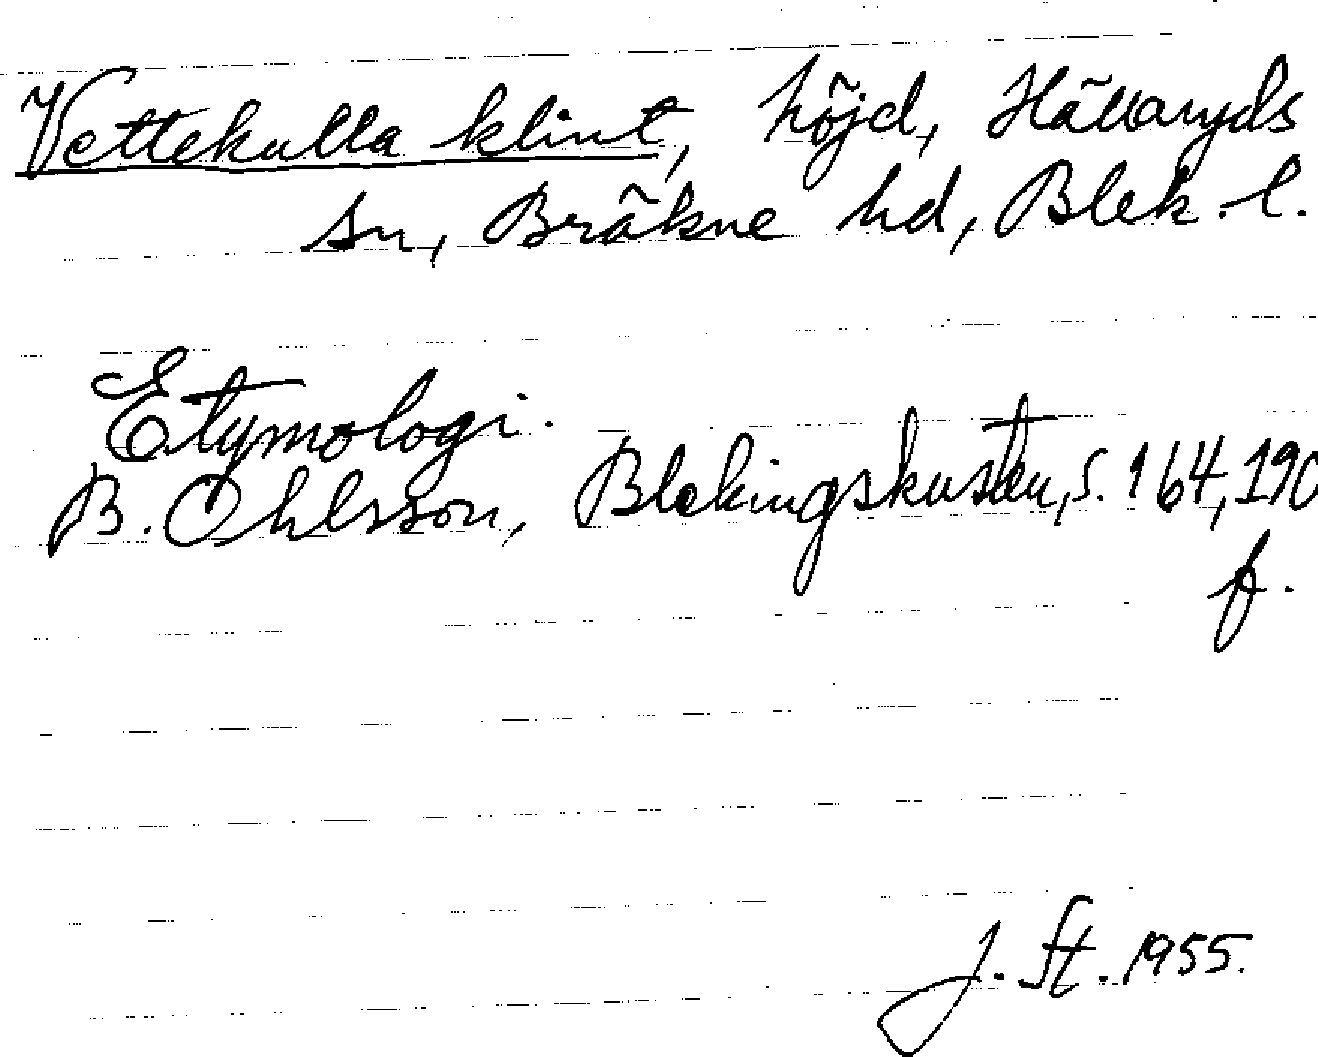 Vettekulla klint, höjd, Hällaryds
sn, Bräkne hd, Blek. l.
Etymologi.
B. Ohlsson, Blekingskusten, s. 164, 190
f.
J. St. 1955.